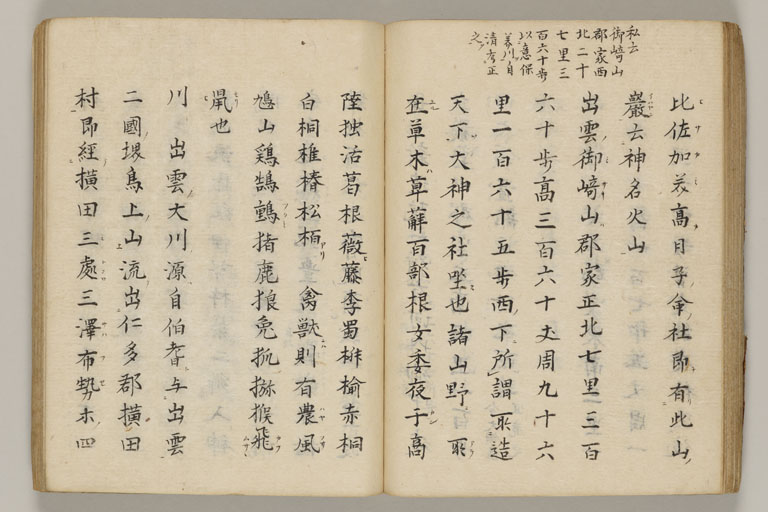 私云
御﨑山
郡家西
北二十
七里三
百六十歩
以意保
養川自
清考正
之
比佐加美高日子命社即有此山
巖云神名火山
出雲御﨑山郡家正北七里三百
六十歩高三百六十丈周九十六
里一百六十五歩西下所謂所造
天下大神之社坐也諸山野所
在草木萆薢百部根女委夜干高
陸独活葛根薇藤李蜀椒楡赤桐
白桐椎椿松栢 禽獣則有農風
鳩山鶏鵠鶫猪鹿狼兎狐猕猴飛
鼠也
川 出雲大川源自伯耆与出雲
二國堺鳥上山流出仁多郡横田
村即經横田三處三澤布勢ホ四